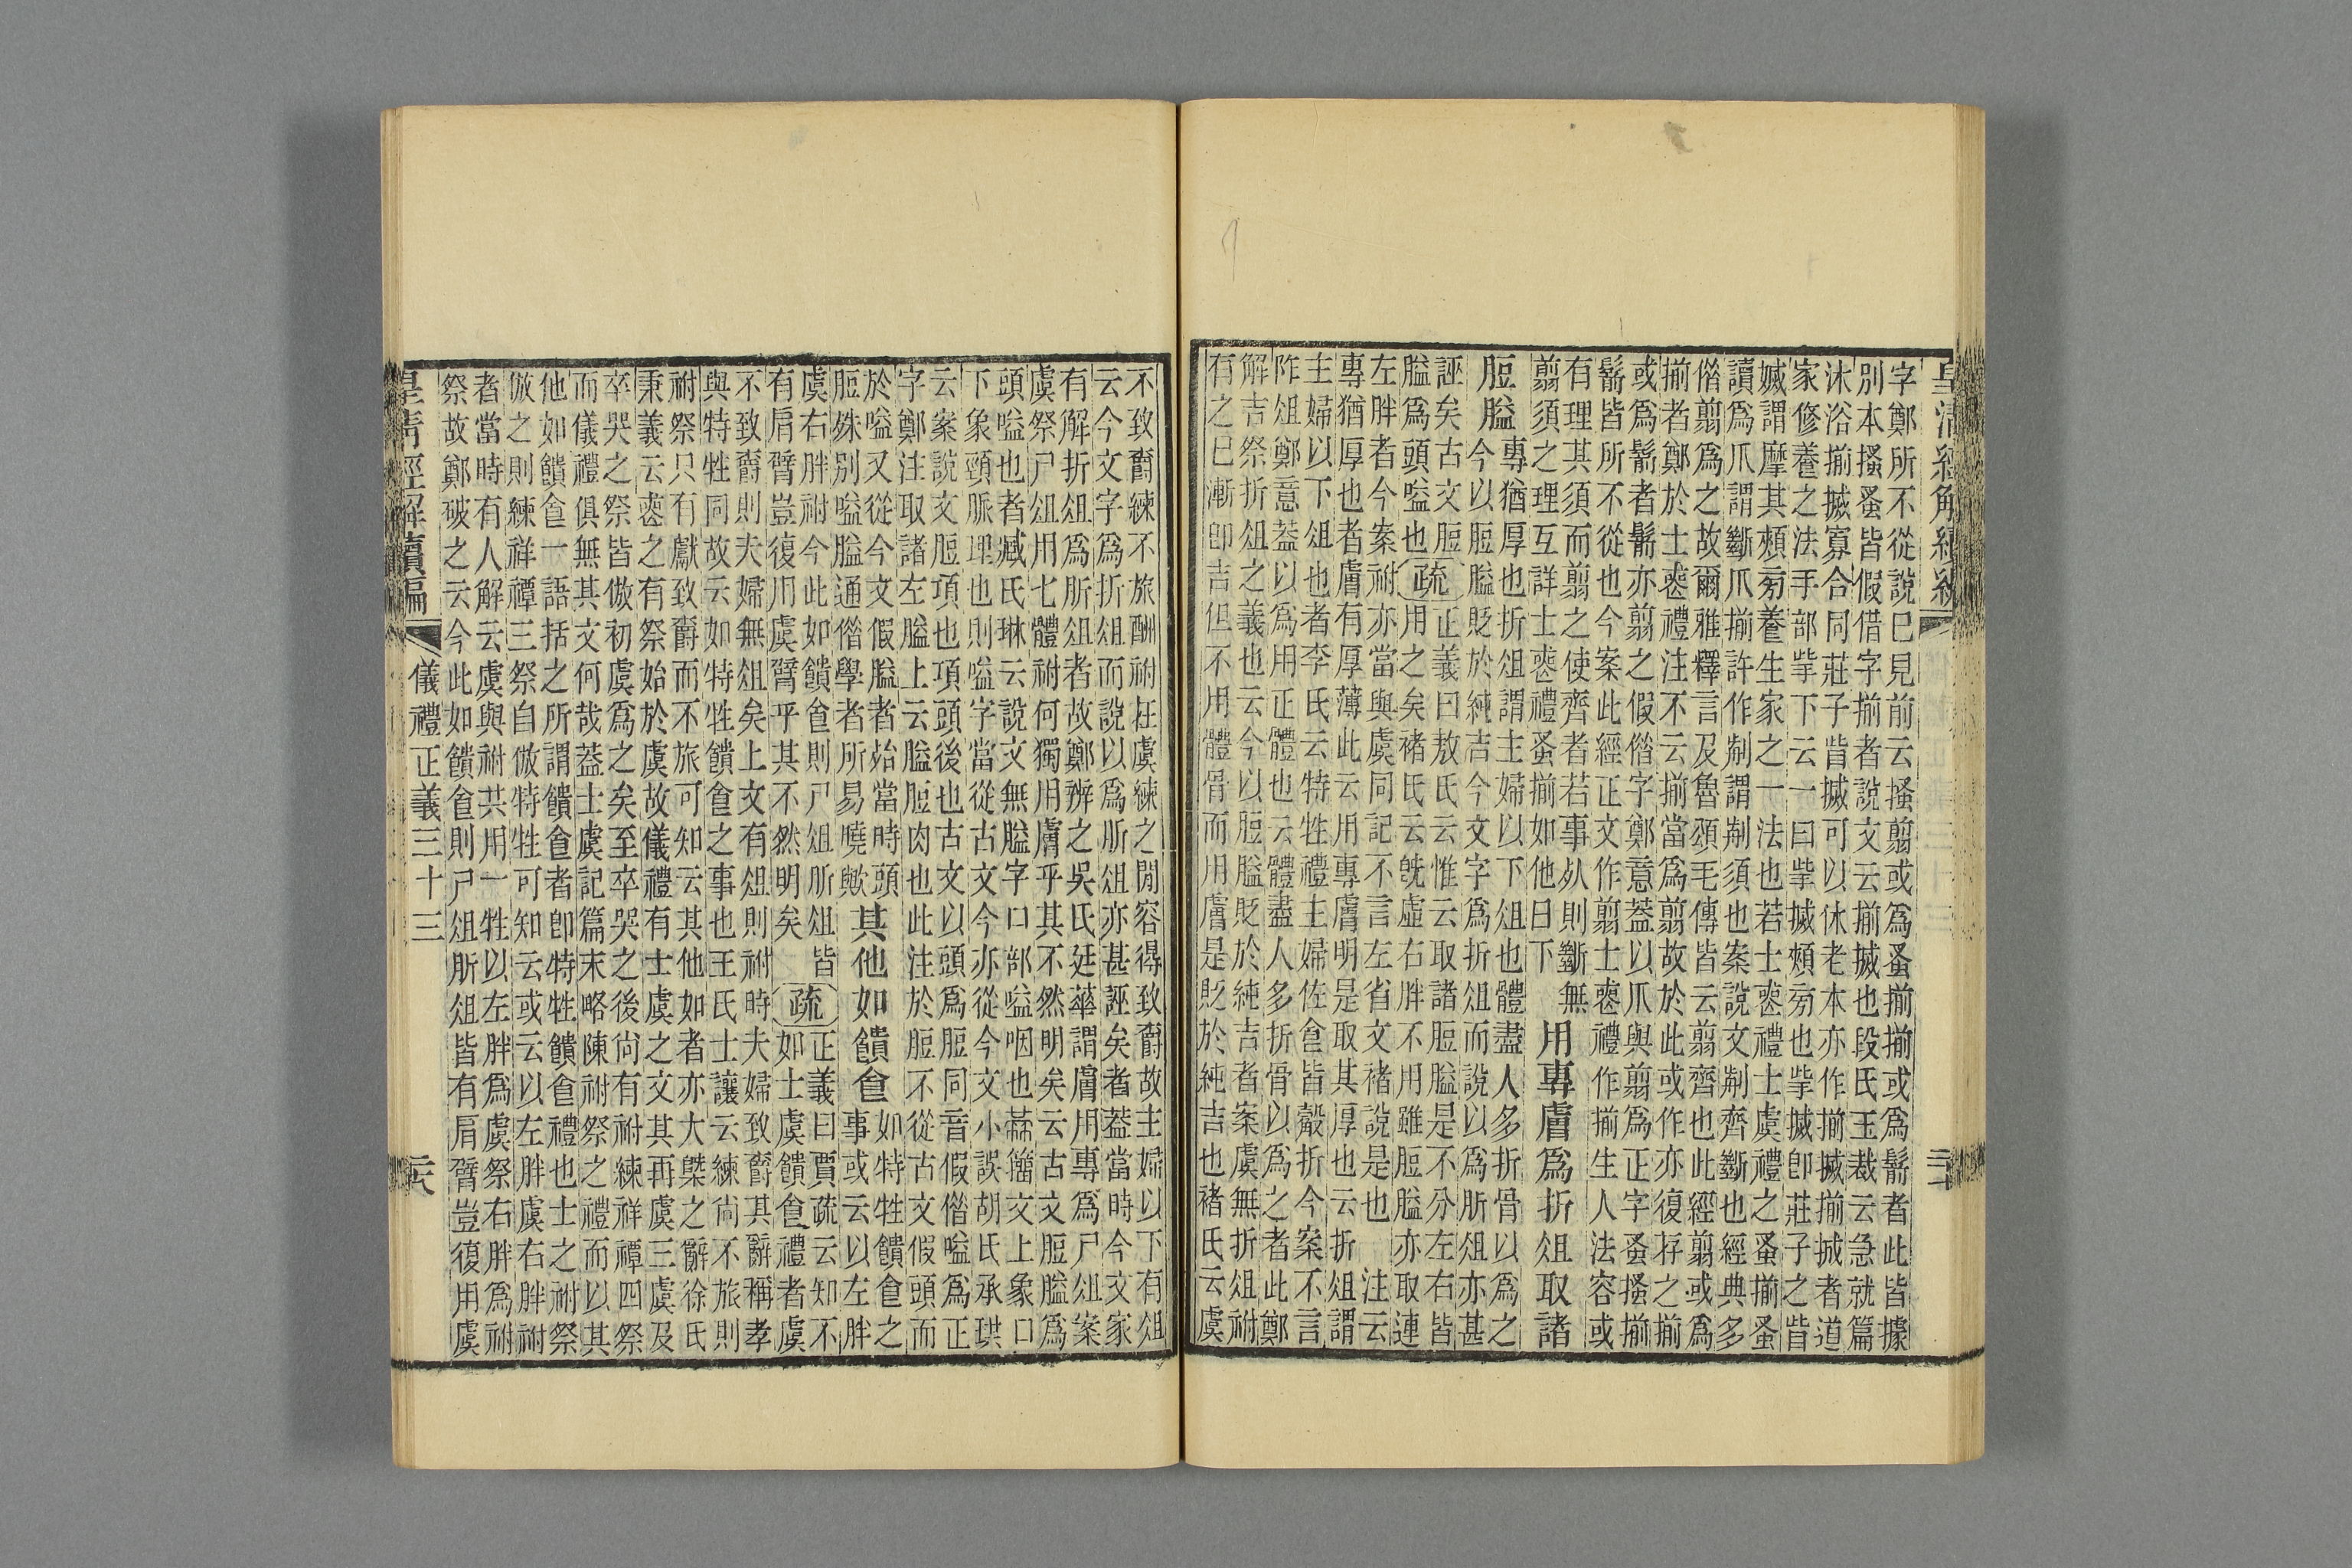 皇清經解續編
字鄭所不從說已見前云搔翦或爲蚤揃揃或爲鬋者此皆據
別本搔蚤皆假借字揃者說文云揃搣也段氏玉裁云急就篇
沐浴揃搣寡合同莊子眥搣可以休老本亦作揃搣揃搣者道
家修養之法手部揫下云一曰揫搣頰旁也揫搣卽莊子之眥
搣謂摩其頰旁養生家之一法也若士喪禮士虞禮之蚤揃蚤
讀爲爪謂斷爪揃許作鬋謂鬋須也案說文鬋齊斷也經典多
偕翦爲之故爾雅釋言及魯頌毛傳皆云翦齊也此經翦或爲
揃者鄭於士喪禮注不云揃當爲翦故於此或作亦復存之揃
或爲鬋者鬋亦翦之假偕字鄭意蓋以爪與翦爲正字蚤搔揃
鬋皆所不從也今案此經正文作翦士喪禮作揃生人法容或
有理其須而翦之使齊者若事死則斷無
翦須之理互詳士喪禮蚤揃如他日下
用專膚爲折俎取諸
脰膉
專猶厚也折俎謂主婦以下俎也體盡人多折骨以爲之
今以脰膉貶於純吉今文字爲折俎而說以爲肵俎亦甚
誣矣古文脰
膉爲頭嗌也
疏
正義曰敖氏云惟云取諸脰膉是不分左右皆
用之矣褚氏云旣虛右胖不用雖脰膉亦取連
左胖者今案祔亦當與虞同記不言左省文褚說是也注云
專猶厚也者膚有厚薄此云用專膚明是取其厚也云折俎謂
主婦以下俎也者李氏云特牲禮主婦佐食皆觳折今案不言
阼俎鄭意蓋以爲用正體也云體盡人多折骨以爲之者此鄭
解吉祭折俎之義也云今以脰膉貶於純吉者案虞無折俎祔
有之巳漸卽吉但不用體骨而用膚是貶於純吉也褚氏云虞
三十
不致爵練不旅酬祔在虞練之閒容得致爵故主婦以下有俎
云今文字爲折俎而說以爲肵俎亦甚誣矣者蓋當時今文家
有解折俎爲肵俎者故鄭辨之吳氏廷華謂膚用專爲尸俎案
虞祭尸俎用七體祔何獨用膚乎其不然明矣云古文脰膉爲
頭嗌也者臧氏琳云說文無膉字口部嗌咽也䔭籀文上象口
下象頸脈理也則嗌字當從古文今亦從今文小誤胡氏承珙
云案說文脰項也項頭後也古文以頭爲脰同音假偕嗌爲正
字鄭注取諸左膉上云膉脰肉也此注於脰不從古文假頭而
於嗌又從今文假膉者始當時頭
脰姝別嗌膉通偕學者所易曉歟
其他如饋食
如特牲饋食之
事或云以左胖
虞右胖祔今此如饋食則尸俎肵俎皆
有肩臂豈復用虞臂乎其不然明矣
疏
正義曰賈疏云知不
如士虞饋食禮者虞
不致爵則夫婦無俎矣上文有俎則祔時夫婦致爵其辭稱孝
與特牲同故云如特牲饋食之事也王氏士讓云練尙不旅則
祔祭只有獻致爵而不旅可知云其他如者亦大槩之辭徐氏
秉義云喪之有祭始於虞故儀禮有士虞之文其再虞三虞及
卒哭之祭皆倣初虞爲之矣至卒哭之後尙有祔練祥禫四祭
而儀禮俱無其文何哉蓋士虞記篇末略陳祔祭之禮而以其
他如饋食一語括之所謂饋食者卽特牲饋食禮也士之祔祭
倣之則練祥禫三祭自倣特牲可知云或云以左胖虞右胖祔
者當時有人解云虞與祔共用一牲以左胖爲虞祭右胖爲祔
祭故鄭破之云今此如饋食則尸俎肵俎皆有肩臂豈復用虞
皇清經解續編
儀禮正義三十三